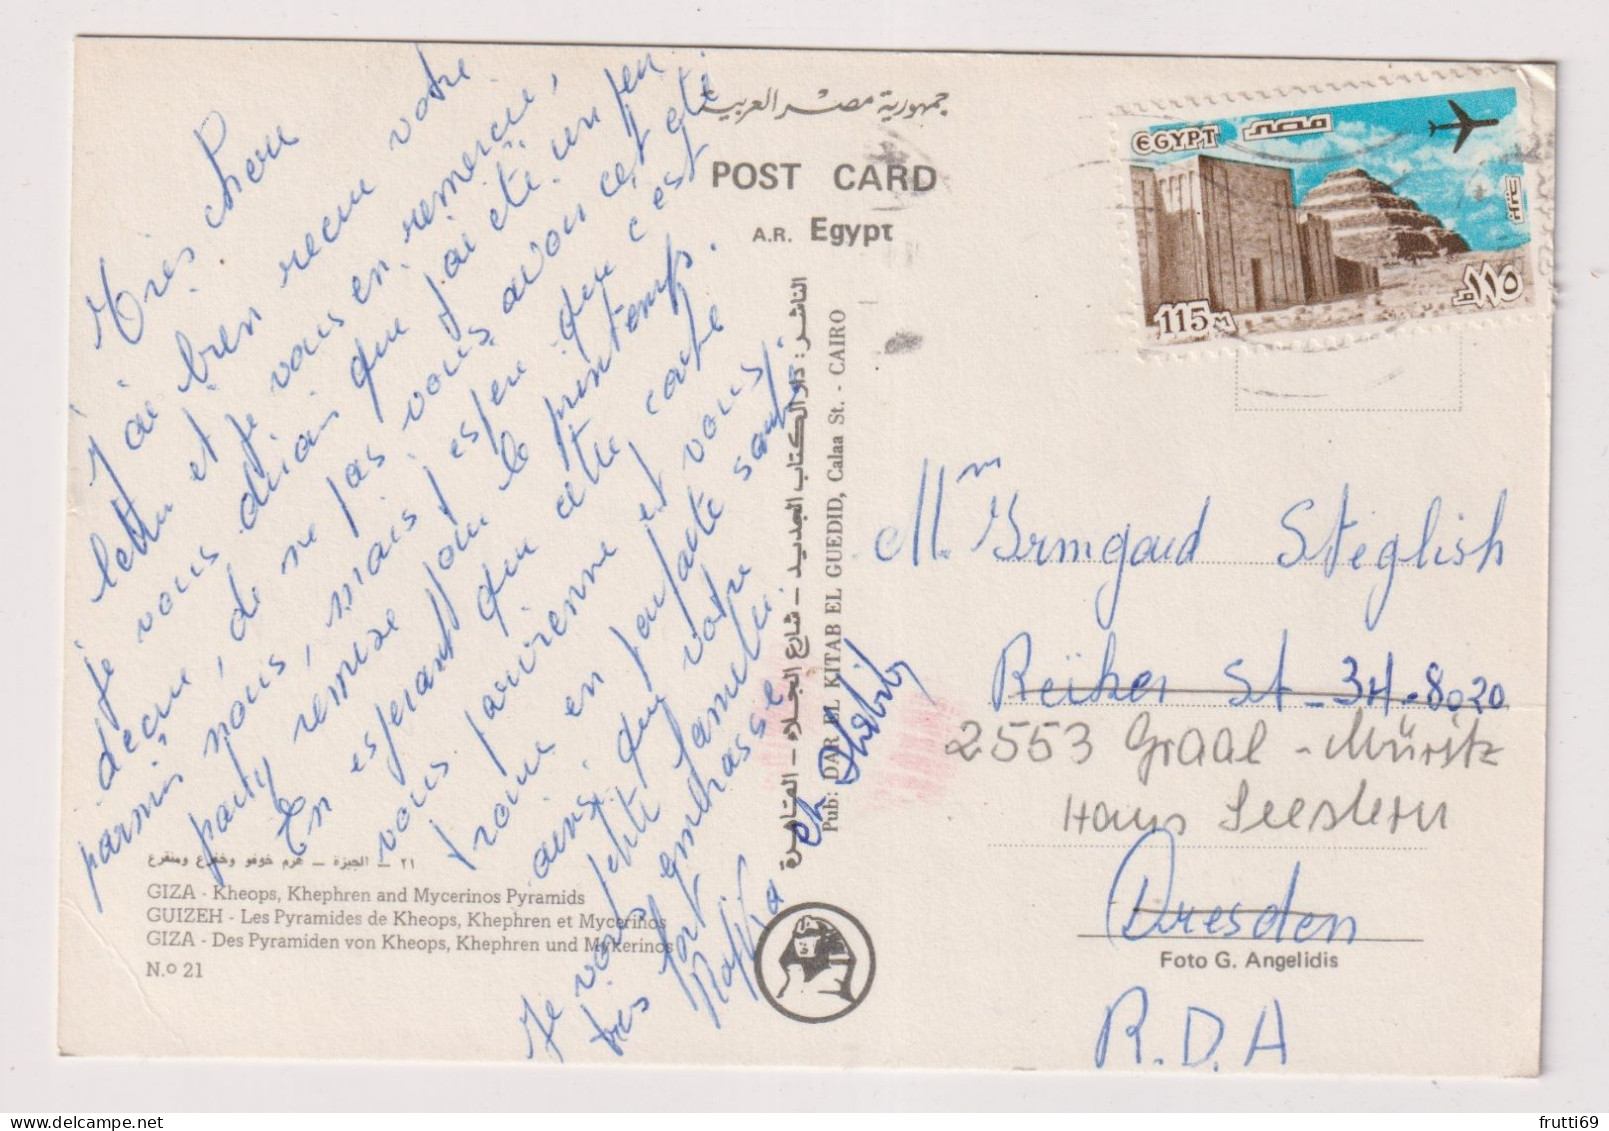 Très chou
J'ai bien recu votre
lettre et je vous en remercie,
je vous dirais que j'ai été un peu
déçue, de ne pas vous avons cet été
parmis nous, mais j'espere que c'est
party remise pour le printemps.
En esperant que cette carte
vous parvienne et vous
trouve en parfaite santé
ainsi que votre
petite famille.
Je vous embrasse
tres fort
Rafika et Habib
جمهورية مصر العربية
POST CARD
A.R. Egypt
الناشر : دار الكتاب الجديد - شارع الجلاء - القاهرة
Pub: DAR EL KITAB EL GUEDID, Calaa St. - CAIRO
EGYPT مصر
115 M ١١٥ م
Mm Irmgard Steglish
Reiker St - 34 - 8020
2553 Graal - Müritz
Haus Seestern
Dresden
Foto G. Angelidis
R.D.A
٢١ - الجيزة - هرم خوفو وخفرع ومنقرع
GIZA - Kheops, Khephren and Mycerinos Pyramids
GUIZEH - Les Pyramides de Kheops, Khephren et Mycerinos
GIZA - Des Pyramiden von Kheops, Khephren und Mykerinos
N.o 21
frutti69